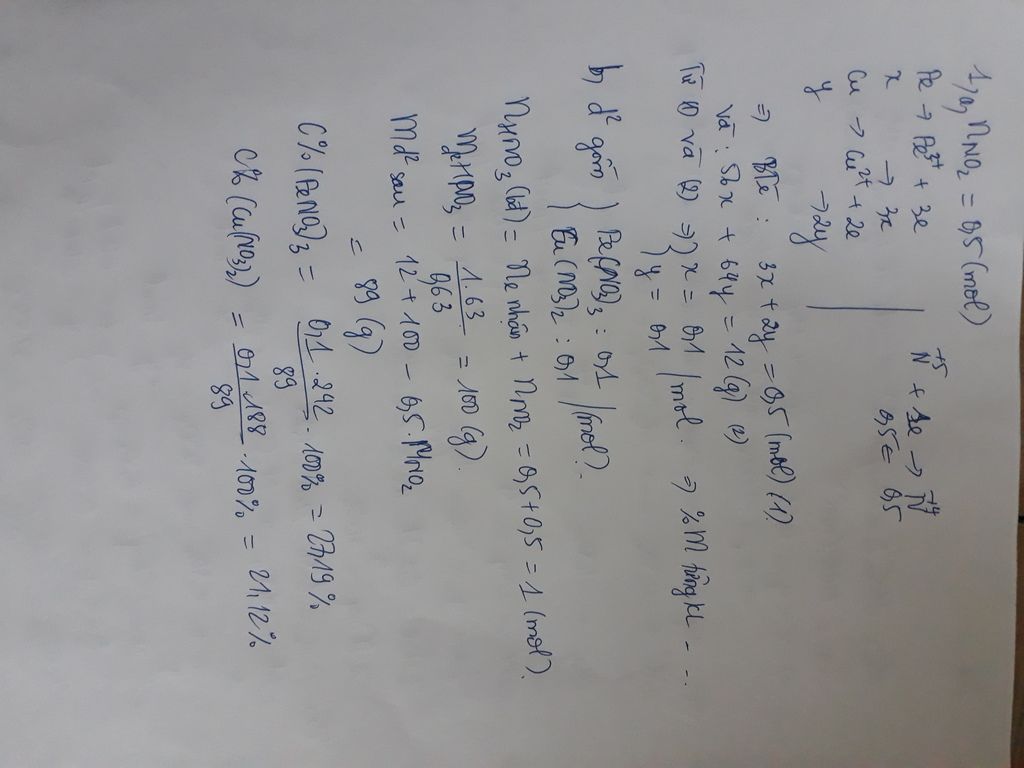 1, a, nNO2 = 0,5 (mol)
Fe → Fe3+ + 3e
N+5 + 1e → N+4
x → 3x
0,5 ← 0,5
Cu → Cu2+ + 2e
y → 2y
⇒ BTe : 3x + 2y = 0,5 (mol) (1)
Và : 56x + 64y = 12 (g) (2)
Từ (1) và (2) ⇒ { x = 0,1
y = 0,1 / mol. ⇒ %m từng KL ...
b, d² gồm } Fe(NO3)3 : 0,1
Cu(NO3)2 : 0,1 / mol).
nHNO3 (bđ) = ne nhận + nNO2 = 0,5 + 0,5 = 1 (mol).
HNO3 = 1.63 / 0,63 = 100 (g).
md² sau = 12 + 100 - 0,5 MNO2
= 89 (g)
C% (FeNO3)3 = 0,1 . 242 / 89 . 100% = 27,19%
C% (Cu(NO3)2) = 0,1 . 188 / 89 . 100% = 21,12%